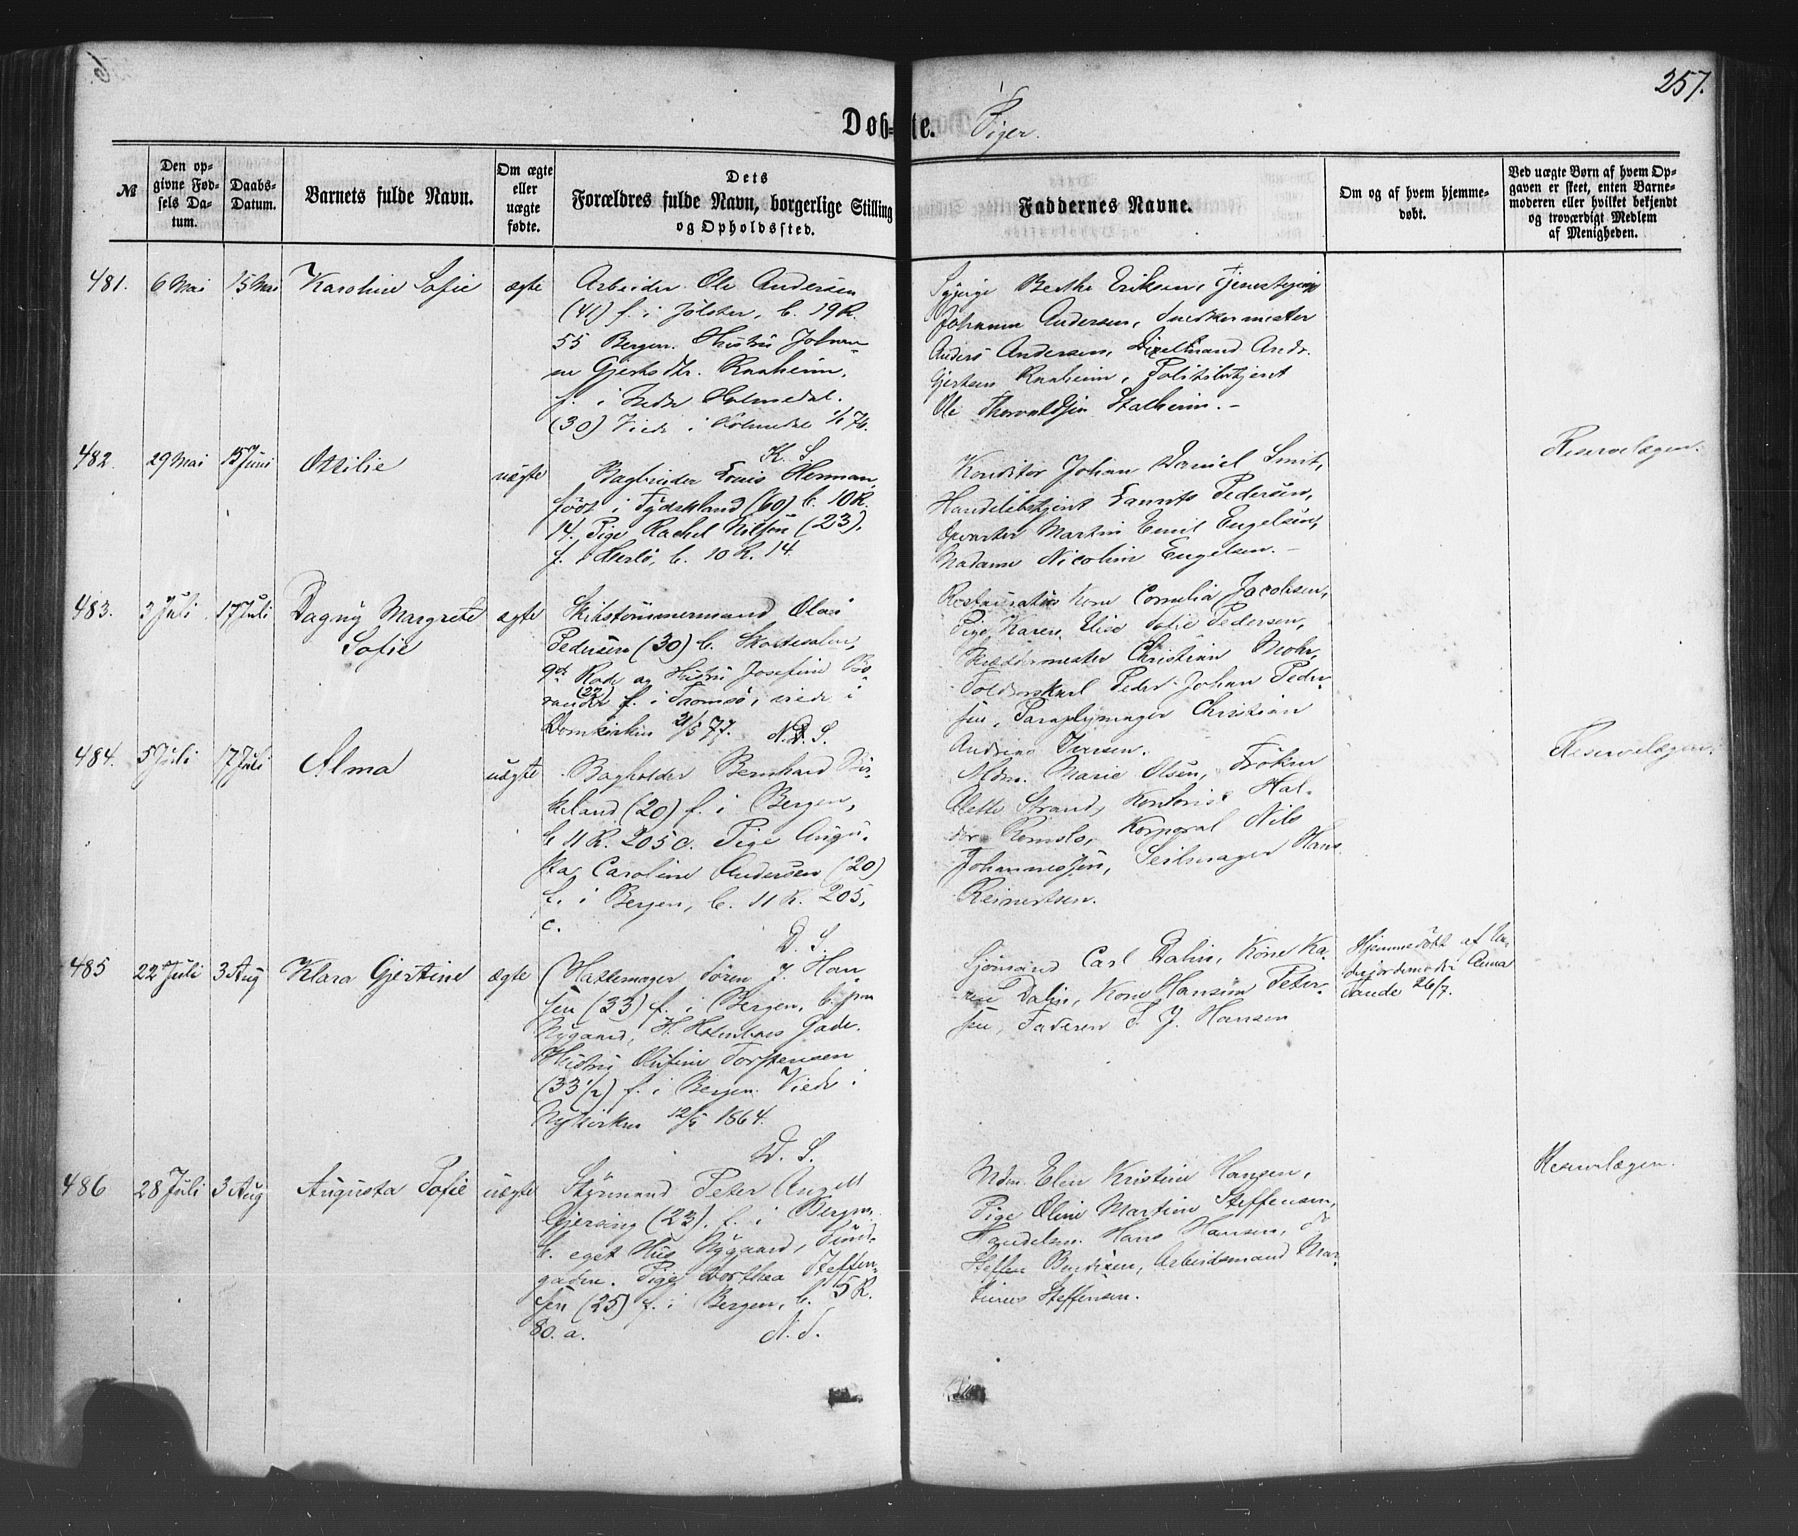 257.
Döb=te. Piger.
№
Den opgivne Fødsels Datum.
Daabs-Datum.
Barnets fulde Navn.
Om ægte eller uægte fødte.
Dets Forældres fulde Navn, borgerlige Stilling og Opholdssted.
Faddernes Navne.
Om og af hvem hjemmedøbt.
Ved uægte Børn af hvem Opgaven er skeet, enten Barnemoderen eller hvilket bekjendt og troværdigt Medlem af Menigheden.
481. 6 Mai 15 Mai Karoline Sofie ægte
Arbeider Ole Andersen
(41) f. i Jölster, b. 19 R.
55 Bergen. Hustru Johan-
ne Gjertsdtr. Raaheim,
f. i Indre Holmedal.
(30) Viede i
K. S.
Sypige Berthe Eriksen, Tjenestepige
Johanne Andersen, Snedkermester
Anders Andersen, Andr.
Gjertsen Raaheim, Politibetjent
Ole Thorvaldsen Stalheim. –
482. 29 Mai 15 Juni Ottilie uægte
Bogbinder Louis Herman,
født i Tydskland (60) b. 10 R.
14. Pige Rachel Nilsen (23),
f. i Herlö, b. 10 R. 14.
Konditor Johan Daniel Smit,
Handelsbetjent Laurits Pedersen,
Opvarter Martin Emil Engelsen,
Madame Nicoline Engelsen. –
Reservelægen.
483. 3 Juli 17 Juli Dagny Margrete
Sofie ægte
Skibstömmermand Olai
Pedersen (30) b. Skostredet,
9de Rode og Hustru Josefine
(27) f. i Tromsö, viede i
Domkirken 21/5 77. N. S.
Restauratörs Kone Cornelia Jacobsen,
Pige Karen Elise Sofie Pedersen,
Skræddermester Christian Mohr,
Peder Johan Peder-
sen, Paraplymager Christian
Andreas Iversen.
484. 5 Juli 17 Juli Alma uægte
Bogholder Bernhard Bir-
keland (20) f. i Bergen,
b. 11 R. 205 c. Pige Augu-
sta Caroline Andersen (20)
f. i Bergen, b. 11 R. 205,
c.
D. S.
Mdm. Marie Olsen, Fröken
Strand, Kontorist Hal-
dor Romslo, Korporal Nils
Johannessen, Seilmager Hans
Reinertsen.
Reservelægen.
485 22 Juli 3 Aug Klara Gjertine ægte
Hattemager Sören J. Han-
sen (33) f. i Bergen, b. paa
Nygaard, H. Holmboes Gade.
Hustru Olufine Torstensen
(33 1/2) f. i Bergen. Viede i
Nykirken 12/5 1864.
D. S.
Sjömand Carl Dalin, Kone Ka-
ren Dalin, Kone Hansine Peter-
sen, Faderen S. J. Hansen
Hjemmedöbt af Jordemoder Anna
Tande 26/7.
486 28 Juli 3 Aug Augusta Sofie uægte
Styrmand Peter Angell
Gjersing (23), f. i Bergen,
b. eget Hus Nygaard, Lund-
gaden. Pige Dorthea Steffen-
sen (25) f. i Bergen, b. 5 R.
80. a. N. S.
Mdm. Elen Kristine Hansen,
Pige Oline Martine Steffensen,
Handelsm. Hans Hansen,
Steffen Bendixen, Arbeidsmand Mar-
tinus Steffensen.
Reservelægen.